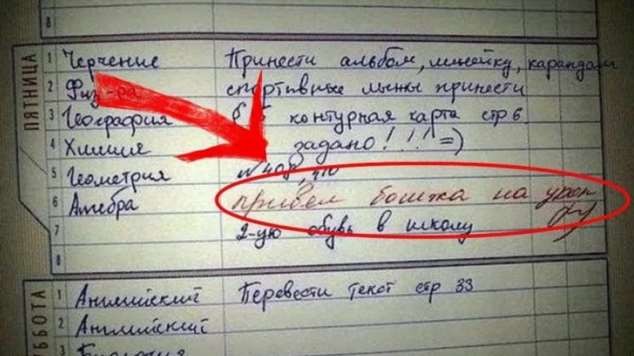 8
ПЯТНИЦА
1 Черчение Принести альбом, линейку, карандаш
2 Физ-ра спортивные лыжи принести
3 География контурная карта стр 6
4 Химия задано!!! =)
5 Геометрия №408, 410
6 Алгебра привел бомжа на урок
7 2-ую обувь в школу
8
УББОТА
1 Английский Перевести текст стр 33
2 Английский
3 Биология